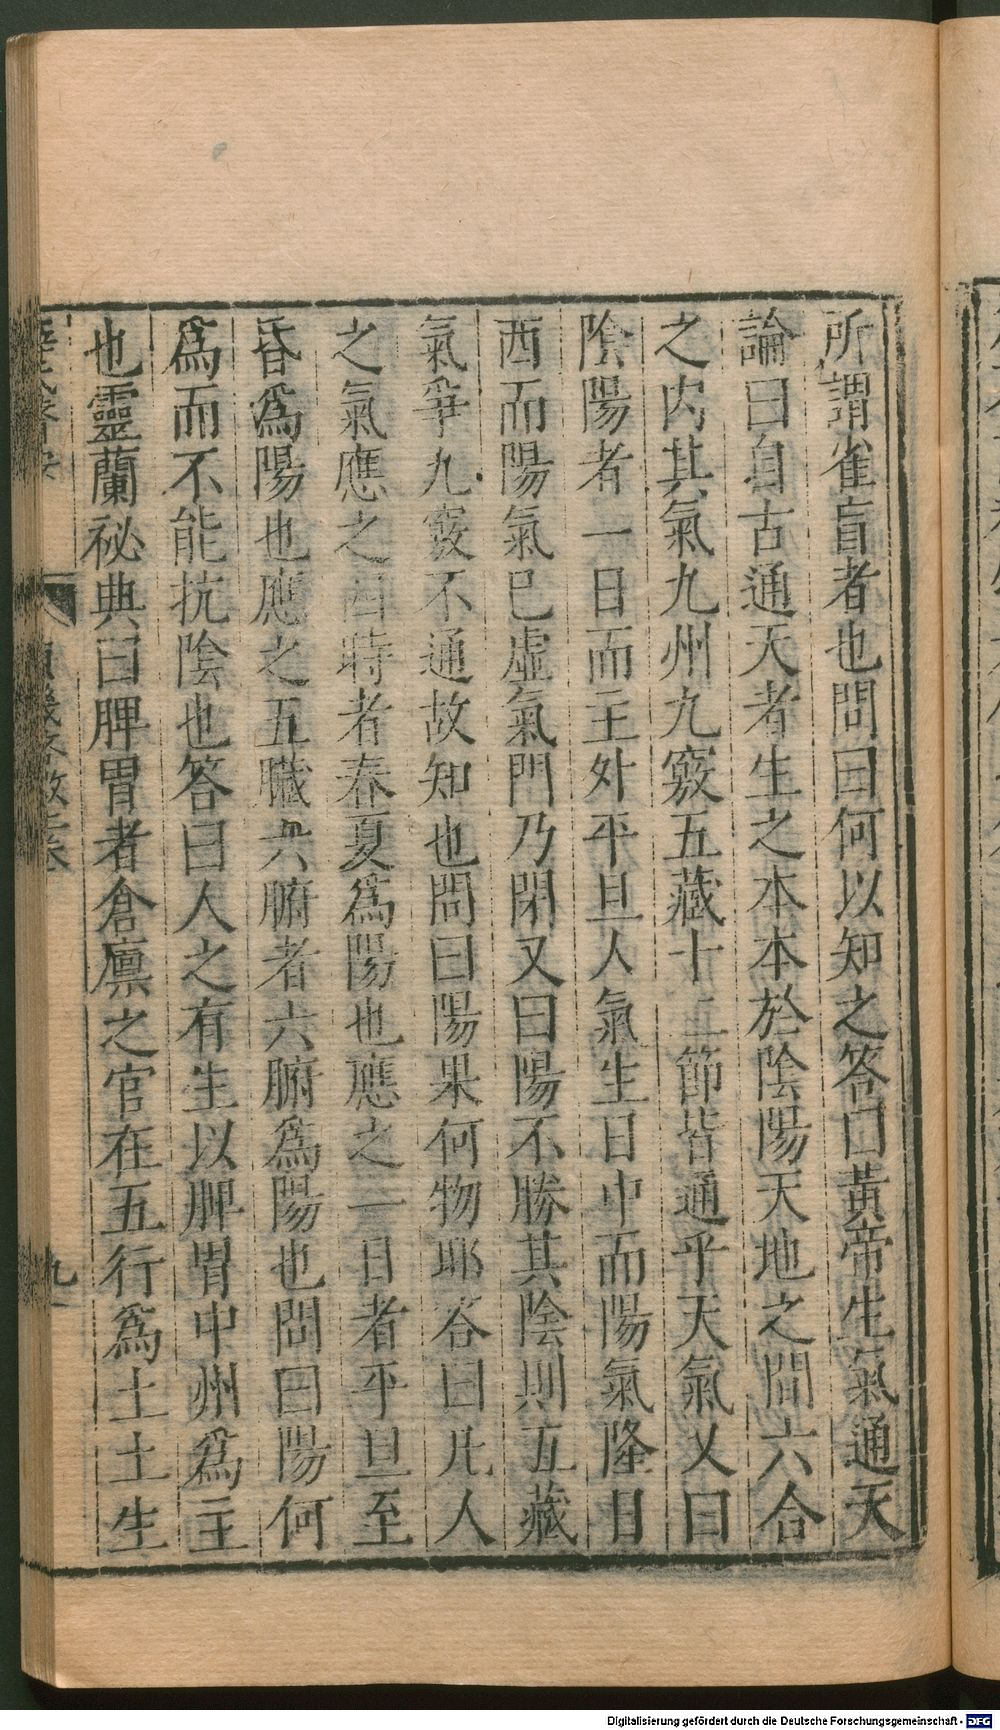 所謂雀盲者也問曰何以知之答曰黃帝生氣通天
論曰自古通天者生之本本於陰陽天地之間六合
之內其氣九州九竅五藏十二節皆通乎天氣又曰
陰陽者一日而主外平旦人氣生日中而陽氣隆日
西而陽氣巳虛氣門乃閉又曰陽不勝其陰則五藏
氣爭九竅不通故知也問曰陽果何物耶答曰凡人
之氣應之四時者春夏爲陽也應之一日者平旦至
昏爲陽也應之五臟六腑者六腑爲陽也問曰陽何
爲而不能抗陰也答曰人之有生以脾胃中州爲主
也靈蘭祕典曰脾胃者倉廩之官在五行爲土土生
九
Digitalisierung gefördert durch die Deutsche Forschungsgemeinschaft - DFG